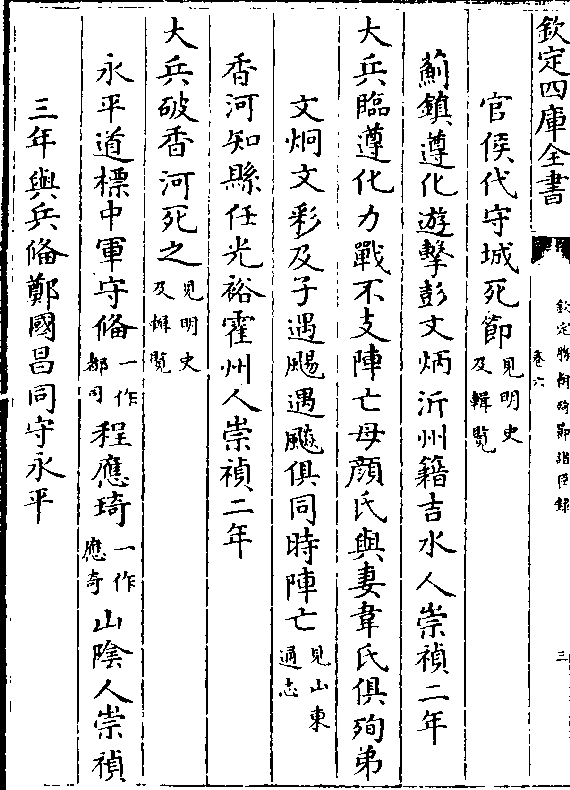 欽定四庫全書
欽定勝朝殉節諸臣錄
卷六
三
官侯代守城死節見明史及輯覽
薊鎮遵化遊擊彭文炳沂州籍吉水人崇禎二年
大兵臨遵化力戰不支陣亡母顔氏與妻韋氏俱殉弟
文炯文彩及子遇颺遇飇俱同時陣亡見山東通志
香河知縣任光裕霍州人崇禎二年
大兵破香河死之見明史及輯覽
永平道標中軍守偹一作都司程應琦一作應奇山陰人崇禎
三年與兵偹鄭國昌同守永平